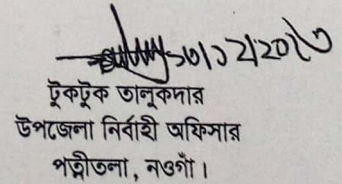 ৩১/১২/২০২৩
টুকটুক তালুকদার
উপজেলা নির্বাহী অফিসার
পত্নীতলা, নওগাঁ।